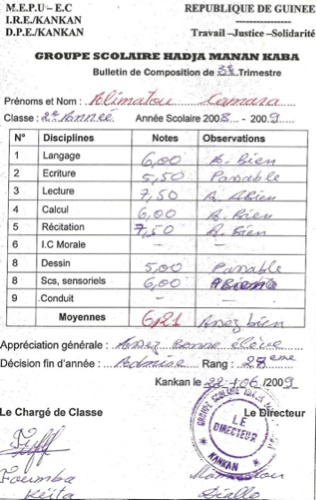 M.E.P.U – E.C REPUBLIQUE DE GUINEE
I.R.E./KANKAN
D.P.E./KANKAN Travail –Justice –Solidarité
GROUPE SCOLAIRE HADJA MANAN KABA
Bulletin de Composition de 3e Trimestre
Prénoms et Nom : Alimatou Camara
Classe : 2e Année Année Scolaire 2008 - 2009
N° Disciplines Notes Observations
1 Langage 6,00 A. Bien
2 Ecriture 5,50 Passable
3 Lecture 7,50 A. Bien
4 Calcul 6,00 A. Bien
5 Récitation 7,50 A. Bien
6 I.C Morale – –
8 Dessin 5,00 Passable
8 Scs, sensoriels 6,00 A Bien
9 Conduit – –
Moyennes 6,21 Assez bien
Appréciation générale : Assez Bonne élève
Décision fin d'année : Admise Rang : 28eme
Kankan le 22 /06 /2009
Le Chargé de Classe Le Directeur
GROUPE SCOLAIRE HADJA
LE
DIRECTEUR
KANKAN
Foumba
Keita Diallo